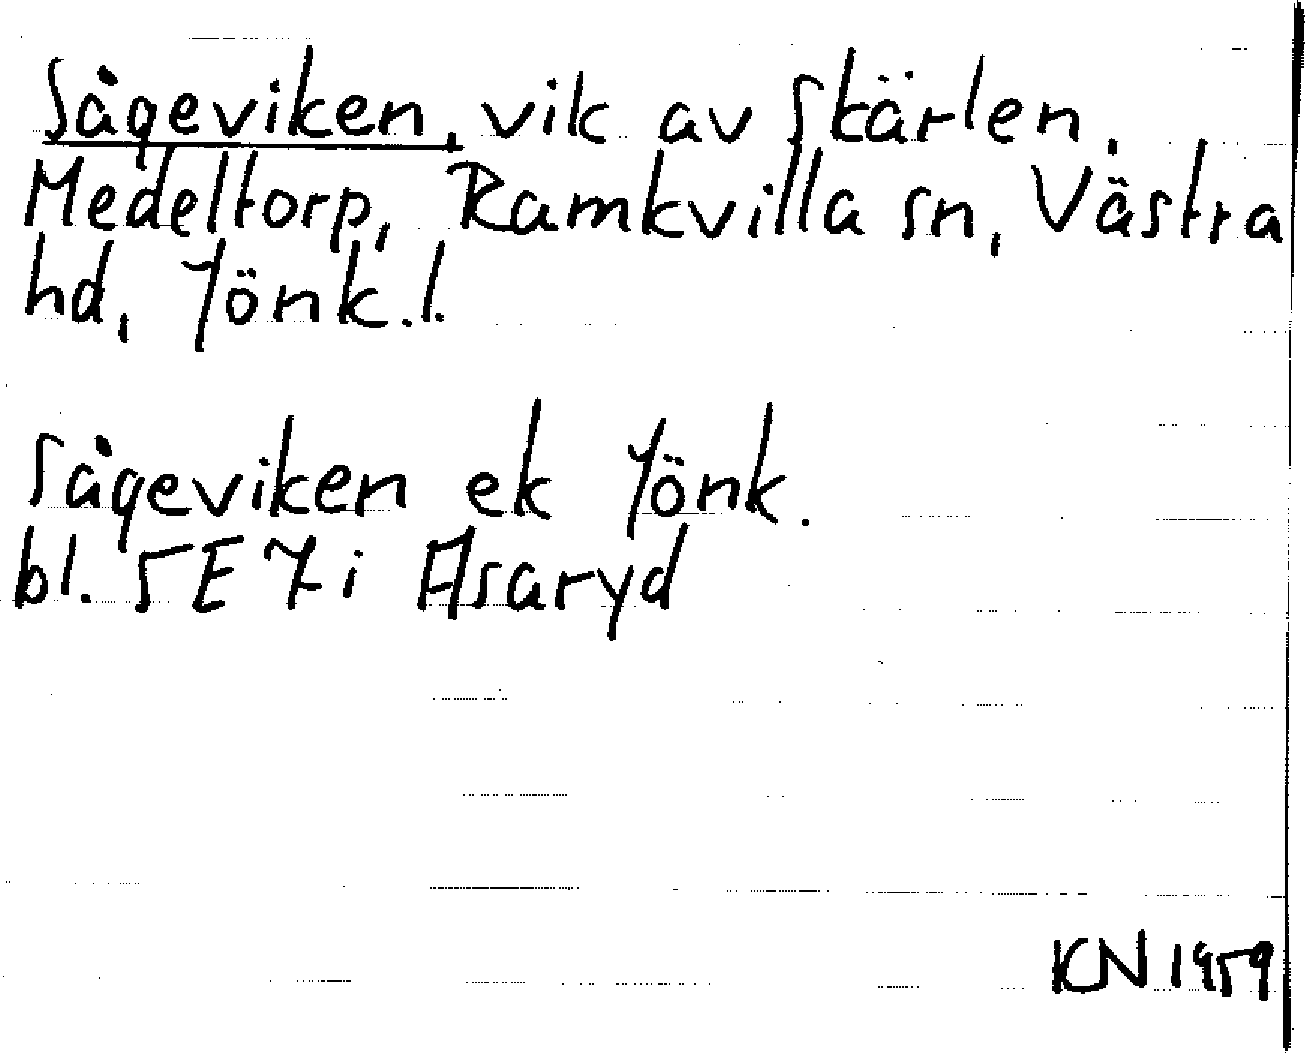 Sågeviken, vik av Skärlen.
Medeltorp, Ramkvilla sn, Västra
hd, Jönk.l.
Sågeviken ek Jönk.
bl. 5E7i Asaryd
KN 1959